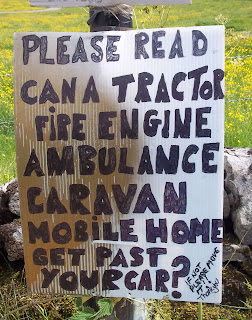 PLEASE READ
CAN A TRACTOR
FIRE ENGINE
AMBULANCE
CARAVAN
MOBILE HOME
GET PAST
YOUR CAR?
IF NOT
PLEASE MOVE
IT
Thankyou